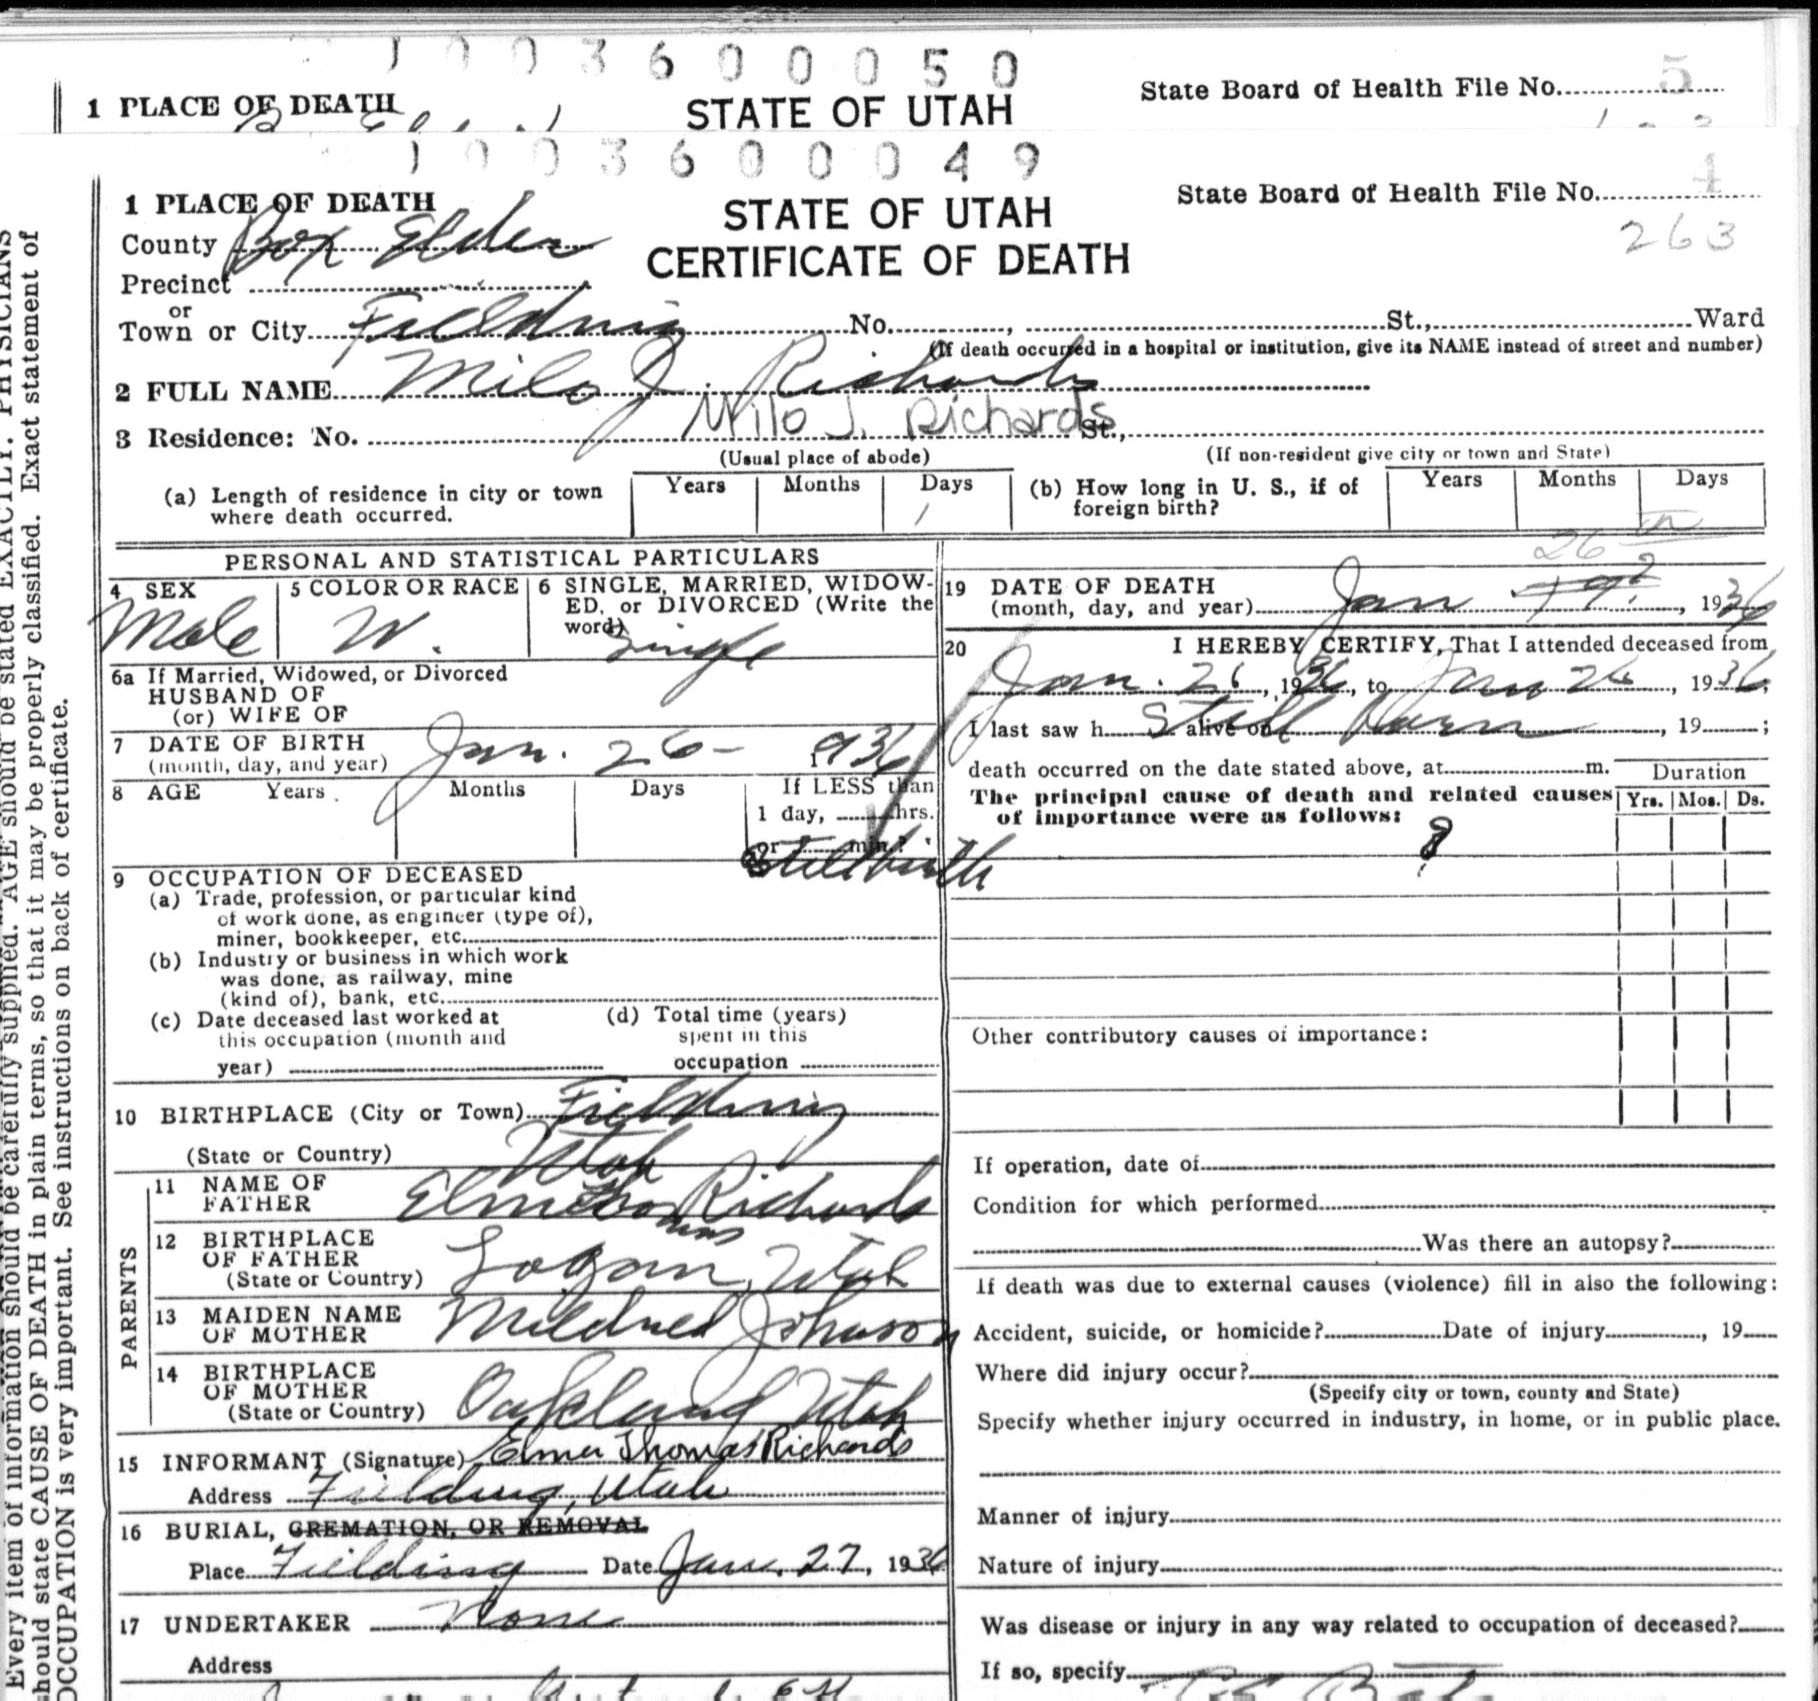 1003600050
1 PLACE OF DEATH
STATE OF UTAH
State Board of Health File No. 5
1003600049
1 PLACE OF DEATH
STATE OF UTAH
State Board of Health File No. 4
263
County Box Elder
CERTIFICATE OF DEATH
Precinct
or
Town or City Fielding No. , St., Ward
(If death occurred in a hospital or institution, give its NAME instead of street and number)
2 FULL NAME Milo J. Richards
Milo J. Richards
3 Residence: No. St.,
(Usual place of abode) (If non-resident give city or town and State)
(a) Length of residence in city or town where death occurred. Years Months Days
(b) How long in U. S., if of foreign birth? Years Months Days
PERSONAL AND STATISTICAL PARTICULARS
4 SEX Male
5 COLOR OR RACE W.
6 SINGLE, MARRIED, WIDOW-
ED, or DIVORCED (Write the
word) Single
6a If Married, Widowed, or Divorced
HUSBAND OF
(or) WIFE OF
7 DATE OF BIRTH Jan. 26 - 1936
(month, day, and year)
8 AGE Years Months Days If LESS than
1 day, hrs.
or min.?
Stillbirth
9 OCCUPATION OF DECEASED
(a) Trade, profession, or particular kind
of work done, as engineer (type of),
miner, bookkeeper, etc.
(b) Industry or business in which work
was done, as railway, mine
(kind of), bank, etc.
(c) Date deceased last worked at
this occupation (month and
year)
(d) Total time (years)
spent in this
occupation
10 BIRTHPLACE (City or Town) Fielding
(State or Country) Utah
PARENTS
11 NAME OF
FATHER Elmer Thomas Richards
12 BIRTHPLACE
OF FATHER Logan, Utah
(State or Country)
13 MAIDEN NAME
OF MOTHER Mildred Johnson
14 BIRTHPLACE
OF MOTHER Oakland Utah
(State or Country)
15 INFORMANT (Signature) Elmer Thomas Richards
Address Fielding, Utah
16 BURIAL, CREMATION, OR REMOVAL
Place Fielding Date Jan. 27, 1936
17 UNDERTAKER None
Address
26 th
19 DATE OF DEATH
(month, day, and year) Jan , 1936
20 I HEREBY CERTIFY, That I attended deceased from
Jan. 26, 1936, to Jan 26, 1936;
I last saw h alive on Still Born, 19 ;
death occurred on the date stated above, at m.
Duration
The principal cause of death and related causes
of importance were as follows:
Yrs. Mos. Ds.
?
Other contributory causes of importance:
If operation, date of
Condition for which performed
Was there an autopsy?
If death was due to external causes (violence) fill in also the following:
Accident, suicide, or homicide? Date of injury , 19
Where did injury occur?
(Specify city or town, county and State)
Specify whether injury occurred in industry, in home, or in public place.
Manner of injury
Nature of injury
Was disease or injury in any way related to occupation of deceased?
If so, specify
Every item of information should be carefully supplied. AGE should be stated EXACTLY. PHYSICIANS
should state CAUSE OF DEATH in plain terms, so that it may be properly classified. Exact statement of
OCCUPATION is very important. See instructions on back of certificate.